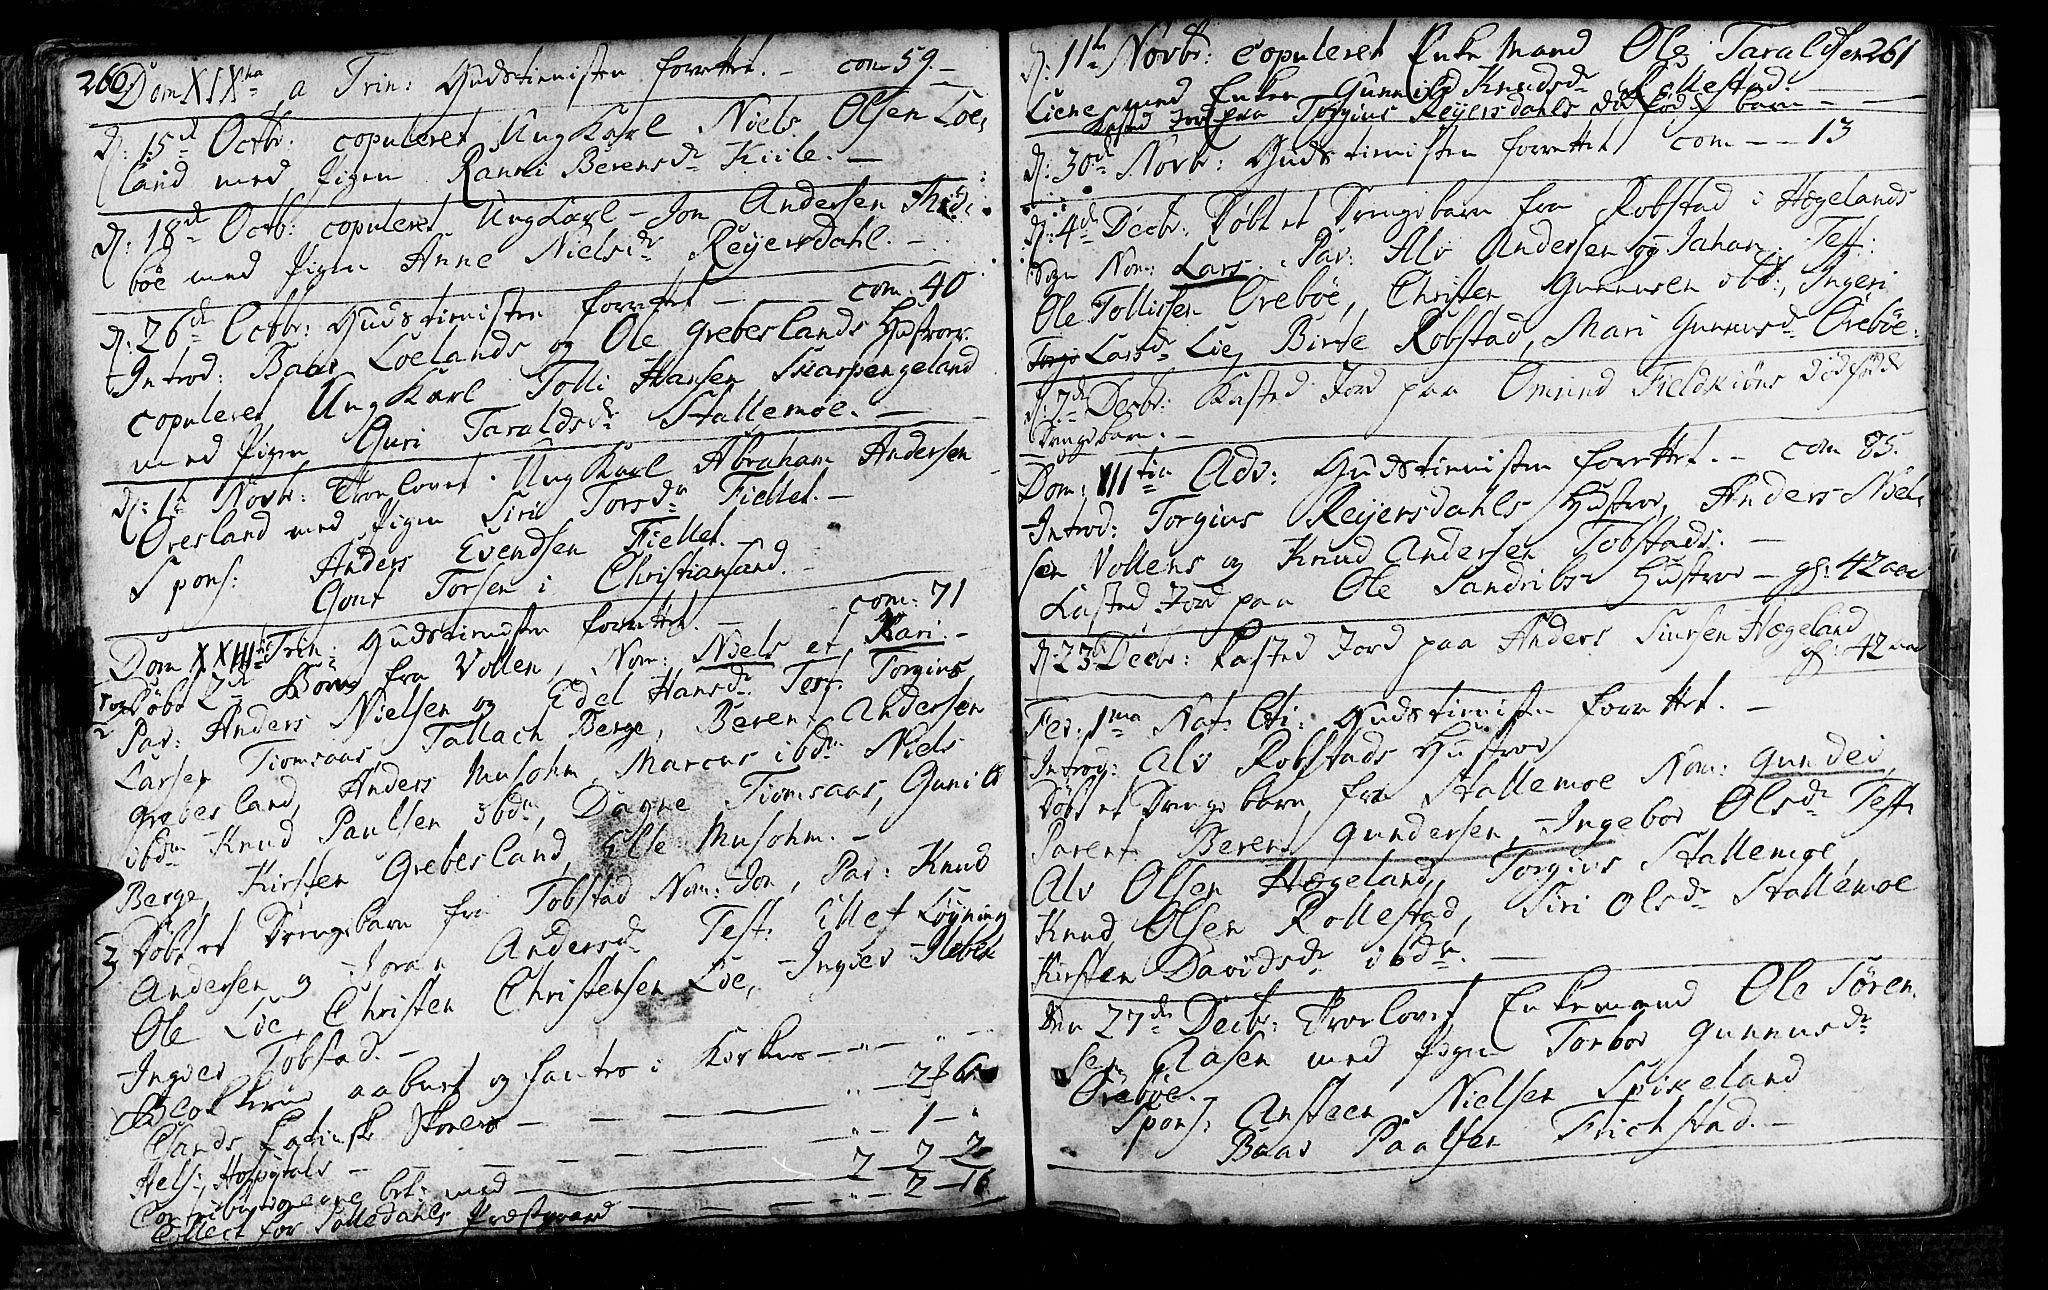 260.
Dom XIXna a Trin: Gudstienisten forrettet. - com 59. -
d: 15d Octbr: copuleret Ung Karl Niels Olsen Loe,
land med Pigen Ranni Berensdr Kiile. -
d: 18d Octb: copuleret Ung Karl Jon Andersen
böe med Pigen Anne Nielsdr Reyersdahl. -
d: 26d Octbr: Gudstienisten forrettet - - - com: 40
Introd: Baar Loelands og Ole Grebeslands Hustroer.
copuleret Ung Karl Tolli Hansen Skarpengeland
med Pigen Guri Taraldsdr Stallemoe. -
d: 1t Novbr: Trovlovet Ung Karl Abraham Andersen
Øresland med Pigen Siri Torsdr Fiellet. -
Spons: Anders Evendsen Fiellet.
Gout Torsen i Christiansand. -
Dom XXIII Trin: Gudstienisten forrettet. - com: 71
1 og 2 Döbt 2de Börn fra Vollen, Nom: Niels et Kari. -
Par: Anders Nielsen og Edel Hansdr. Test. Torgius
Larsen Tiomsaas Tallach Berge, Berent Andersen
Grebesland, Anders Musohm, Marcus ibdm Niels
ibdm Knud Paulsen ibdm, Dagne Tiomsaas, Gunild
Berge, Kirsten Grebesland, Else Musohm. -
3 Döbt et Drengebarn fra Tobstad Nom: Jon, Par: Knud
Andersen og Joran Andersdr Test: Ellef Löyning
Ole Loe, Christen Christensen Loe, Inger Ilebek
Inger Tobstad. -
Blokkene aabnet og fantes i Kirkens - " - " -
Elands Latinske Skoeles - - - - " - 1 - "
Hels: Hospitals - - - - " - 2 - 2
Contributionerne bel: med - - 2 - 2 - 16
Collect for Tolledahls Præstgaard

261
d: 11te Novbr: copuleret Enke Mand Ole Taraldsen
Liene med Enken Gunnild Knudsdr Rollestad.
Kasted Jord paa Torgius Reyersdahls död föd barn - -
d: 30d Novbr: Gudstienisten forrettet com - - 13
d: 4de Decbr: Döbt et Drengebarn fra Robstad i Hægelands
Sogn Nom: Lars. Par: Alv Andersen og Johan. Test:
Ole Tollissen Orebøe, Christen Gunnusen ibd:, Ingeri
Larsdr Lie, Birte Robstad, Mari Gunnusdr Örebøe.
d: 7de Decbr: Kasted Jord paa Omund Fieldkiöns dödfödde
Drengebarn. -
Dom: IIItia Adv: Gudstienisten forrettet. - com 85.
Introd: Torgius Reyersdahls Hustroe, Anders Niel,
sen Vollens og Knud Andersen Tobstads. -
Kasted Jord paa Ole Sandribs Hustroe - gl: 42 aar
d: 23d Decbr: Kasted Jord paa Anders Siursen Hægeland
gl: 42 aar
Fer: 1ma Nat: Cti: Gudstienisten forrettet. -
Introd: Alv Robstads Hustroe
Döbt et Drengebarn fra Stallemoe Nom: Gunder,
Parent Berent Gundersen, Ingebor Olsdr Test:
Alv Olsen Hægeland, Torgius Stallemoe,
Knud Olsen Rollestad, Siri Olsdr Stallemoe
Kirsten Davidsdr ibdm. -
Den 27de Decbr: Trovlovet Enkemand Ole Sören,
sen Aasen med Pigen Torbor Gunnusdr
Örebøe.
Spons: Ansteen Nielsen Spikeland
Baar Paalsen Frichstad. -